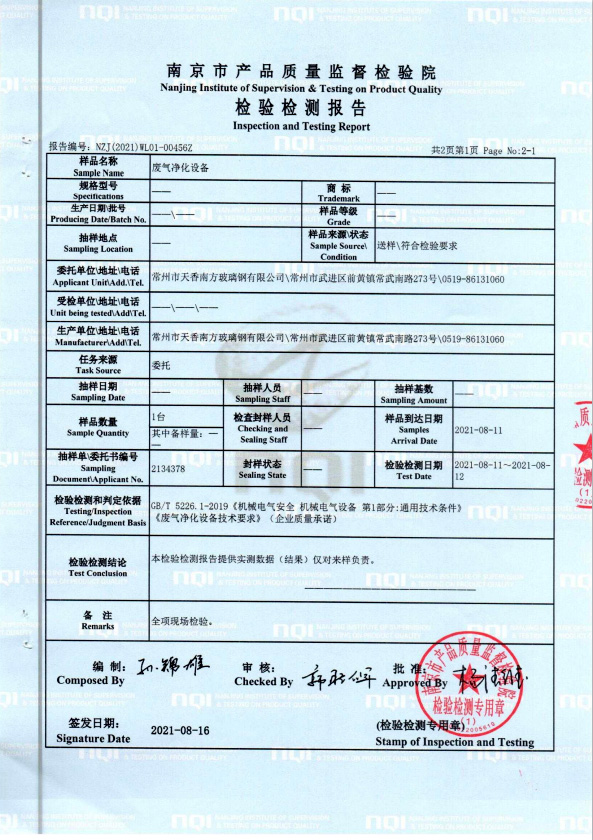 南京市产品质量监督检验院
Nanjing Institute of Supervision & Testing on Product Quality
检验检测报告
Inspection and Testing Report
报告编号：NZJ(2021)WL01-00456Z
共2页第1页 Page No:2-1
样品名称
Sample Name
废气净化设备
规格型号
Specifications
——
商 标
Trademark
——
生产日期\批号
Producing Date/Batch No.
——\——
样品等级
Grade
——
抽样地点
Sampling Location
——
样品来源\状态
Sample Source\
Condition
送样\符合检验要求
委托单位\地址\电话
Applicant Unit\Add.\Tel.
常州市天香南方玻璃钢有限公司\常州市武进区前黄镇常武南路273号\0519-86131060
受检单位\地址\电话
Unit being tested\Add\Tel.
——\——\——
生产单位\地址\电话
Manufacturer\Add\Tel.
常州市天香南方玻璃钢有限公司\常州市武进区前黄镇常武南路273号\0519-86131060
任务来源
Task Source
委托
抽样日期
Sampling Date
——
抽样人员
Sampling Staff
——
抽样基数
Sampling Amount
——
样品数量
Sample Quantity
1台
其中备样量：——
检查封样人员
Checking and
Sealing Staff
——
样品到达日期
Samples
Arrival Date
2021-08-11
抽样单\委托书编号
Sampling
Document\Applicant No.
2134378
封样状态
Sealing State
——
检验检测日期
Test Date
2021-08-11～2021-08-
12
检验检测和判定依据
Testing/Inspection
Reference/Judgment Basis
GB/T 5226.1-2019《机械电气安全 机械电气设备 第1部分:通用技术条件》
《废气净化设备技术要求》（企业质量承诺）
检验检测结论
Test Conclusion
本检验检测报告提供实测数据（结果）仅对来样负责。
备 注
Remarks
全项现场检验。
编 制:
Composed By
审 核:
Checked By
批 准:
Approved By
南京市产品质量监督检验院
检验检测专用章
(1)
签发日期:
Signature Date
2021-08-16
(检验检测专用章)
Stamp of Inspection and Testing